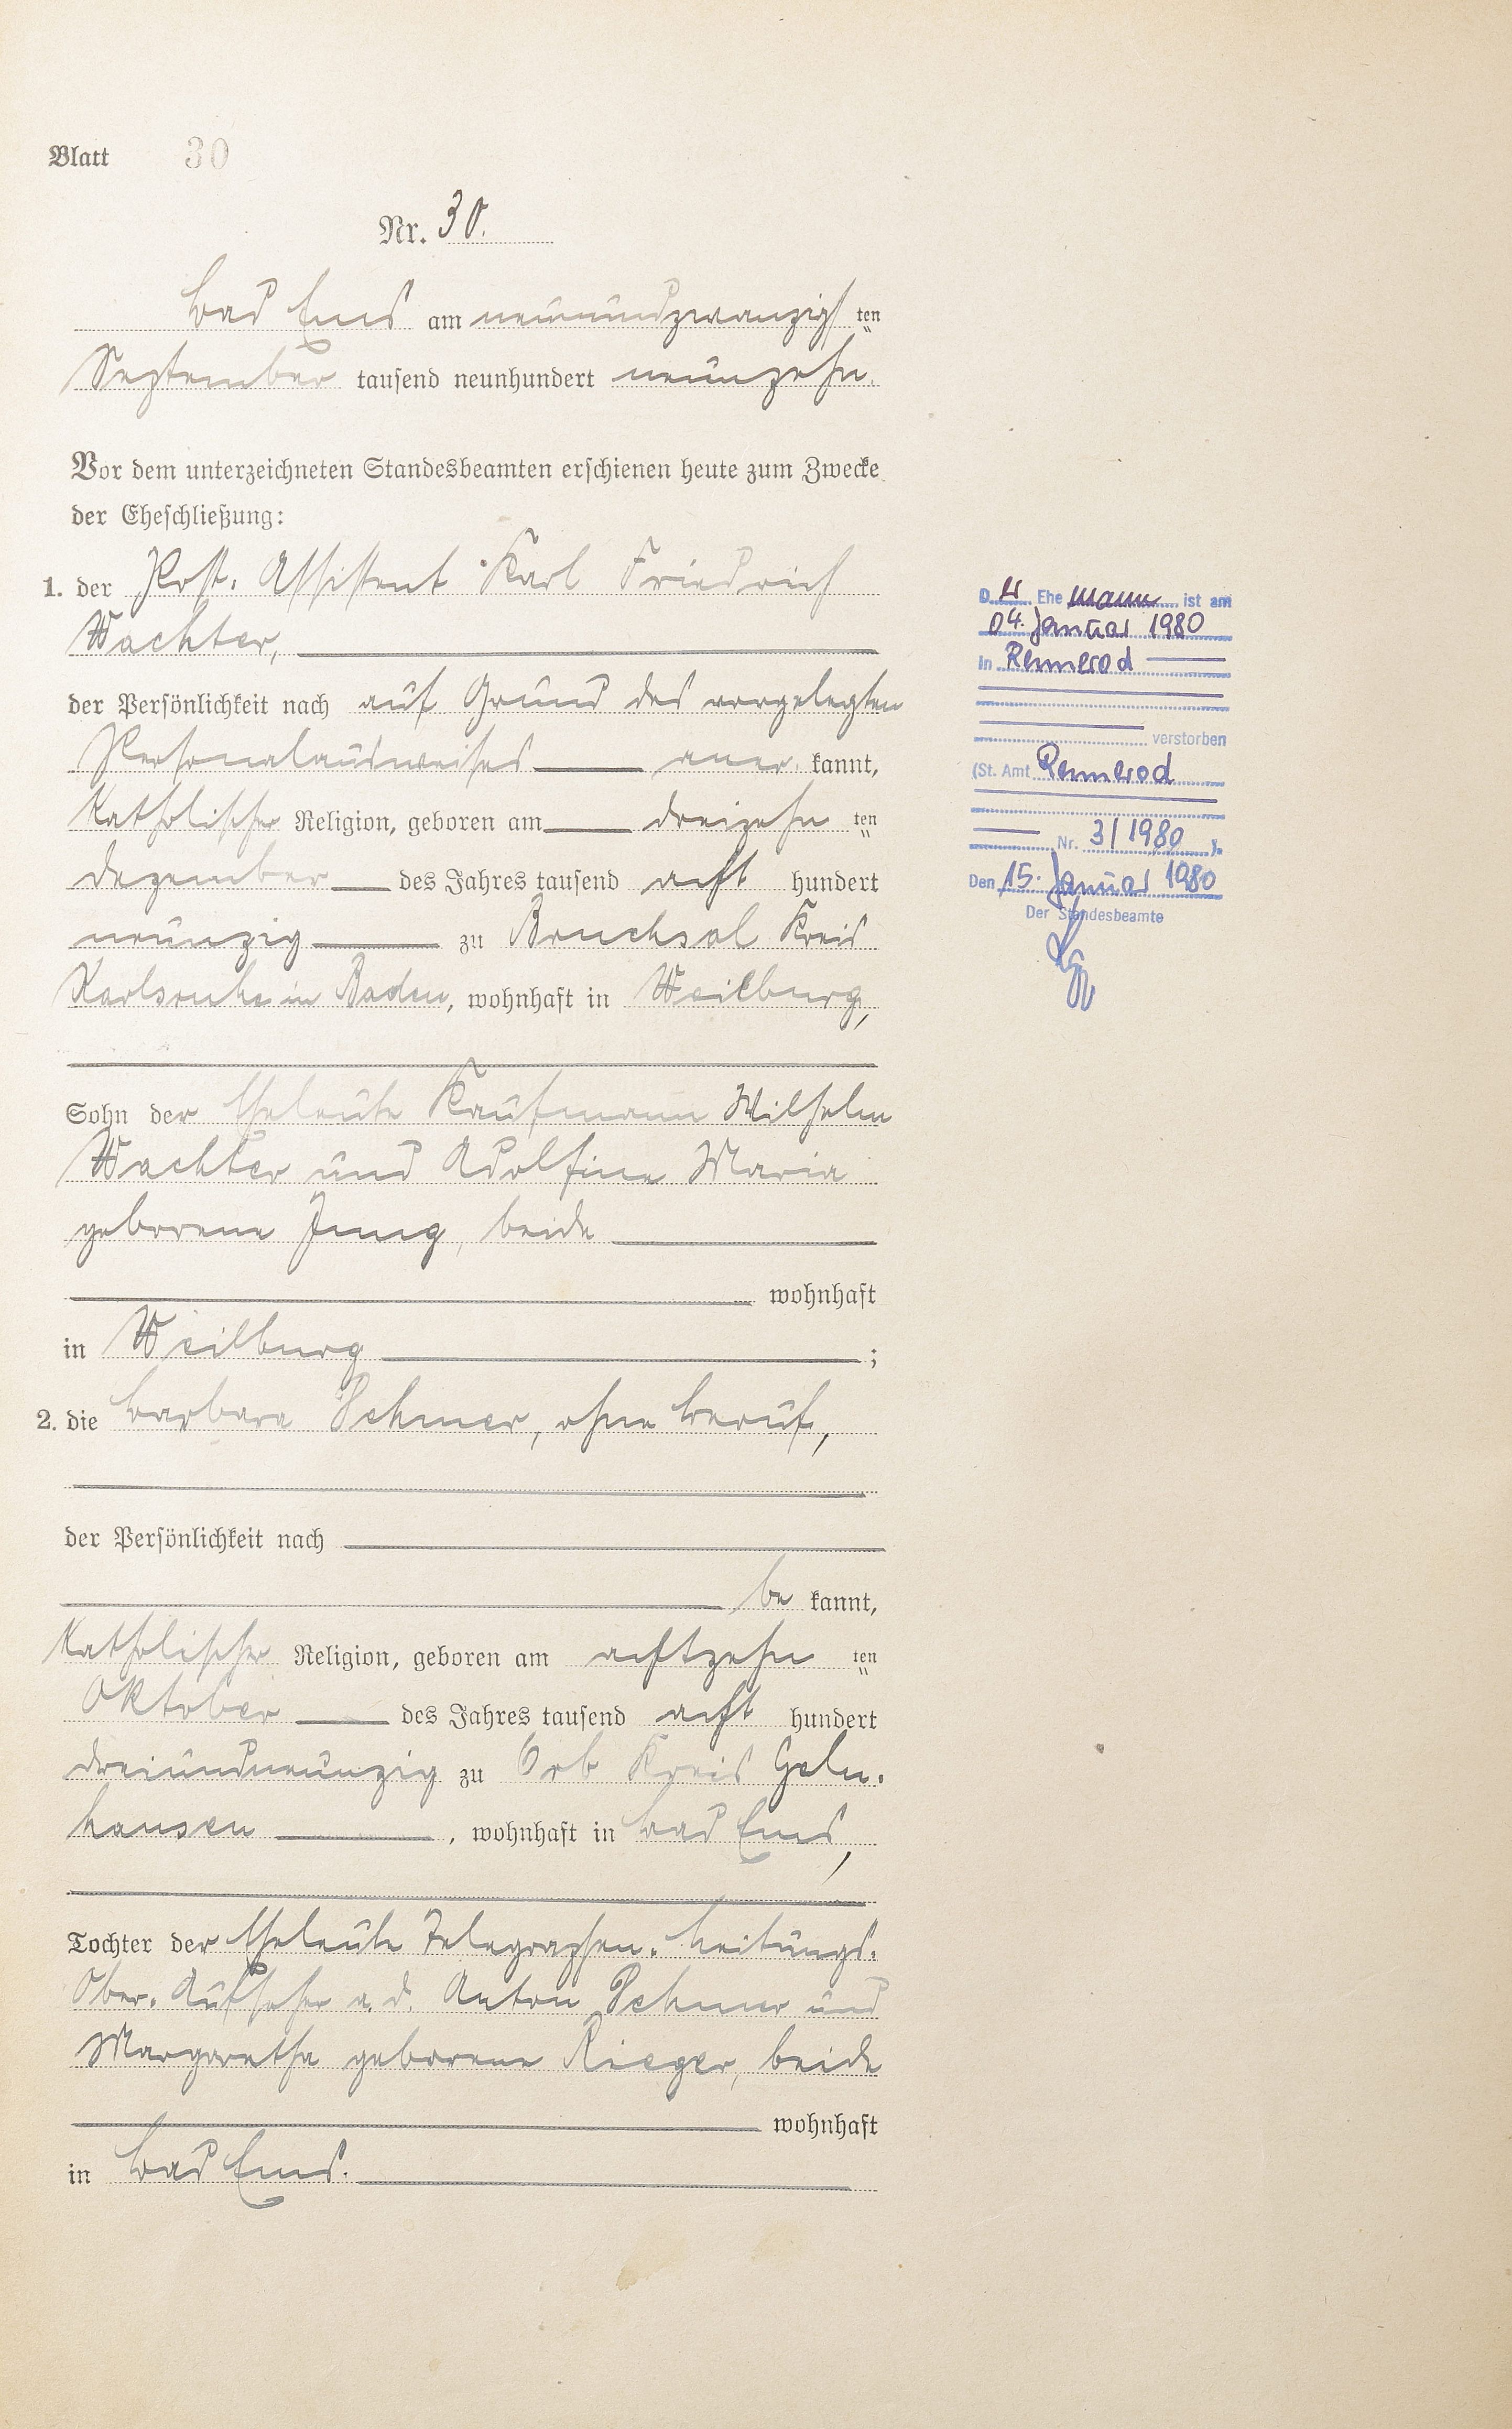 Blatt 30
Nr. 30.
Bad Ems am neunundzwanzigsten
September tausend neunhundert neunzehn.
Vor dem unterzeichneten Standesbeamten erschienen heute zum Zwecke
der Eheschließung:
1. der Post-Assistent Karl Friedrich
Wachter,
der Persönlichkeit nach auf Grund des vorgelegten
Personalausweises anerkannt,
katholischer Religion, geboren am dreizehnten
Dezember des Jahres tausend acht hundert
neunzig zu Bruchsal Kreis
Karlsruhe in Baden, wohnhaft in Weilburg,
Sohn der Eheleute Kaufmann Wilhelm
Wachter und Adolfine Maria
geborene Jung, beide
wohnhaft
in Weilburg ;
2. die Barbara Schmer, ohne Beruf,
der Persönlichkeit nach
be kannt,
katholischer Religion, geboren am achtzehnten
Oktober des Jahres tausend acht hundert
dreiundneunzig zu Orb Kreis Geln-
hausen , wohnhaft in Bad Ems,
Tochter der Eheleute Telegraphen-Leitungs-
Ober-Aufseher a. d. Anton Schmer und
Margaretha geborene Rieger, beide
wohnhaft
in Bad Ems.
Der Ehemann ist am
04. Januar 1980
in Rennerod
verstorben
(St. Amt Rennerod
Nr. 3/1980 ).
Den 15. Januar 1980
Der Standesbeamte